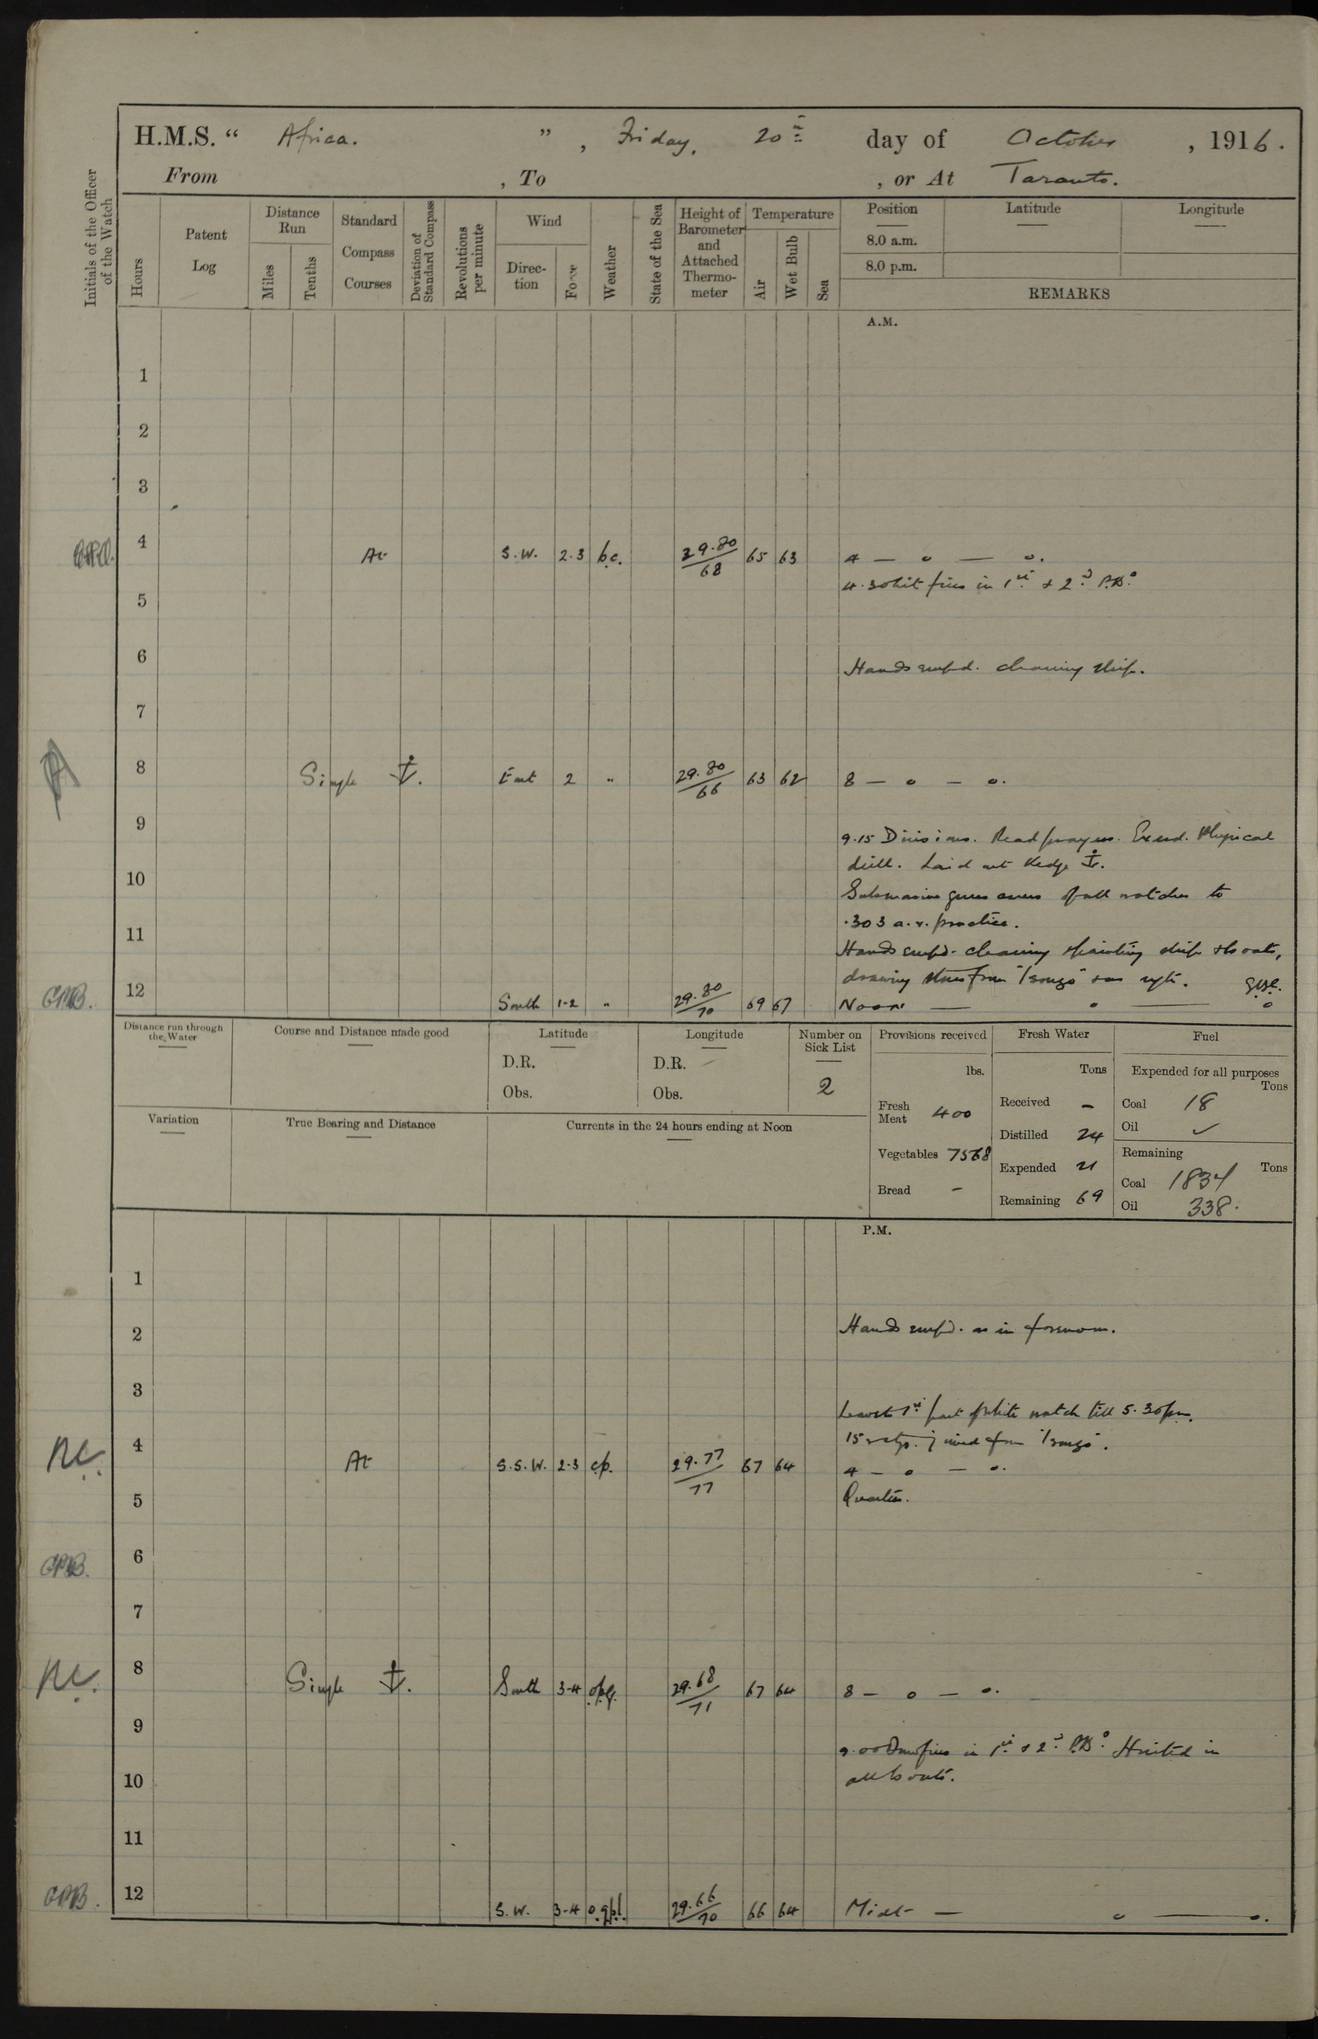 H.M.S. “ Africa. ” , Friday, 20th day of October , 1916.
From , To , or At Taranto.
Initials of the Officer of the Watch
Hours
Patent Log
Distance Run
Miles
Tenths
Standard Compass Courses
Deviation of Standard Compass
Revolutions per minute
Wind
Direction
Force
Weather
State of the Sea
Height of Barometer and Attached Thermometer
Temperature
Air
Wet Bulb
Sea
Position Latitude Longitude
8.0 a.m.
8.0 p.m.
REMARKS
A.M.
1
2
3
4 At S.W. 2.3 b.c. 29.80/68 65 63 4 — o — o.
4.30 Lit fires in 1st & 2nd P.Bo
5
6
Hands empd. cleaning ship.
7
8 Single ⚓. East 2 " 29.80/66 63 62 8 — o — o.
9
9.15 Divisions. Read prayers. Exerd. Physical
drill. Laid out Kedge ⚓.
10
Submarine guns crews of all watches to
.303 a.r. practice.
11
Hands empd. cleaning & painting ship & boats,
drawing stores from "Isonzo"
12 G.P.B. South 1-2 " 29.80/70 69 67 Noon — o — o
Distance run through the Water
Course and Distance made good
Latitude
D.R.
Obs.
Longitude
D.R.
Obs.
Number on Sick List
2
Provisions received
lbs.
Fresh Meat 400
Vegetables 7568
Bread -
Fresh Water
Tons
Received -
Distilled 24
Expended 21
Remaining 69
Fuel
Expended for all purposes
Tons
Coal 18
Oil ✓
Remaining
Tons
Coal 1834
Oil 338.
Variation
True Bearing and Distance
Currents in the 24 hours ending at Noon
P.M.
1
2
Hands empd. as in forenoon.
3
Leave to 1st part of white watch till 5.30 pm.
15 ratgs. joined from "Isonzo".
4 At S.S.W. 2-3 c.p. 29.77/77 67 64 4 — o — o.
Quarters.
5
6 G.P.B.
7
8 Single ⚓. South 3-4 o.p.q. 29.68/71 67 64 8 — o — o.
9
9.00 Drew fires in 1st & 2nd P.Bo Hoisted in
all boats.
10
11
12 G.P.B. S.W. 3-4 o.q.p.l. 29.66/70 66 64 Midt — o — o.